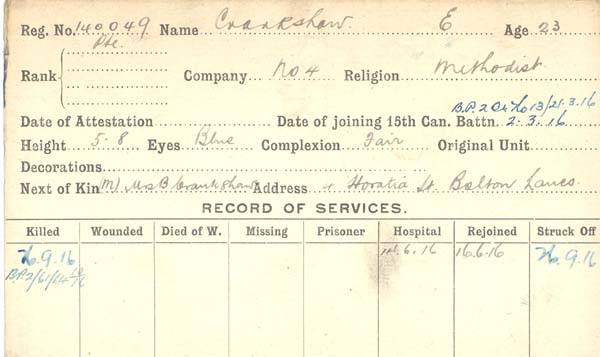 Reg. No. 140049 Name Crankshaw. E Age 23
Pte.
Rank Company No 4 Religion Methodist
B.P. 2 13/21.3.16
Date of Attestation Date of joining 15th Can. Battn. 2.3.16
Height 5-8 Eyes Blue Complexion Fair Original Unit
Decorations
Next of Kin (M) Mrs B Crankshaw Address Horatia St. Bolton Lancs.
RECORD OF SERVICES.
Killed Wounded Died of W. Missing Prisoner Hospital Rejoined Struck Off
26.9.16 6.16 16.6.16 26.9.16
B.P.2/61/14